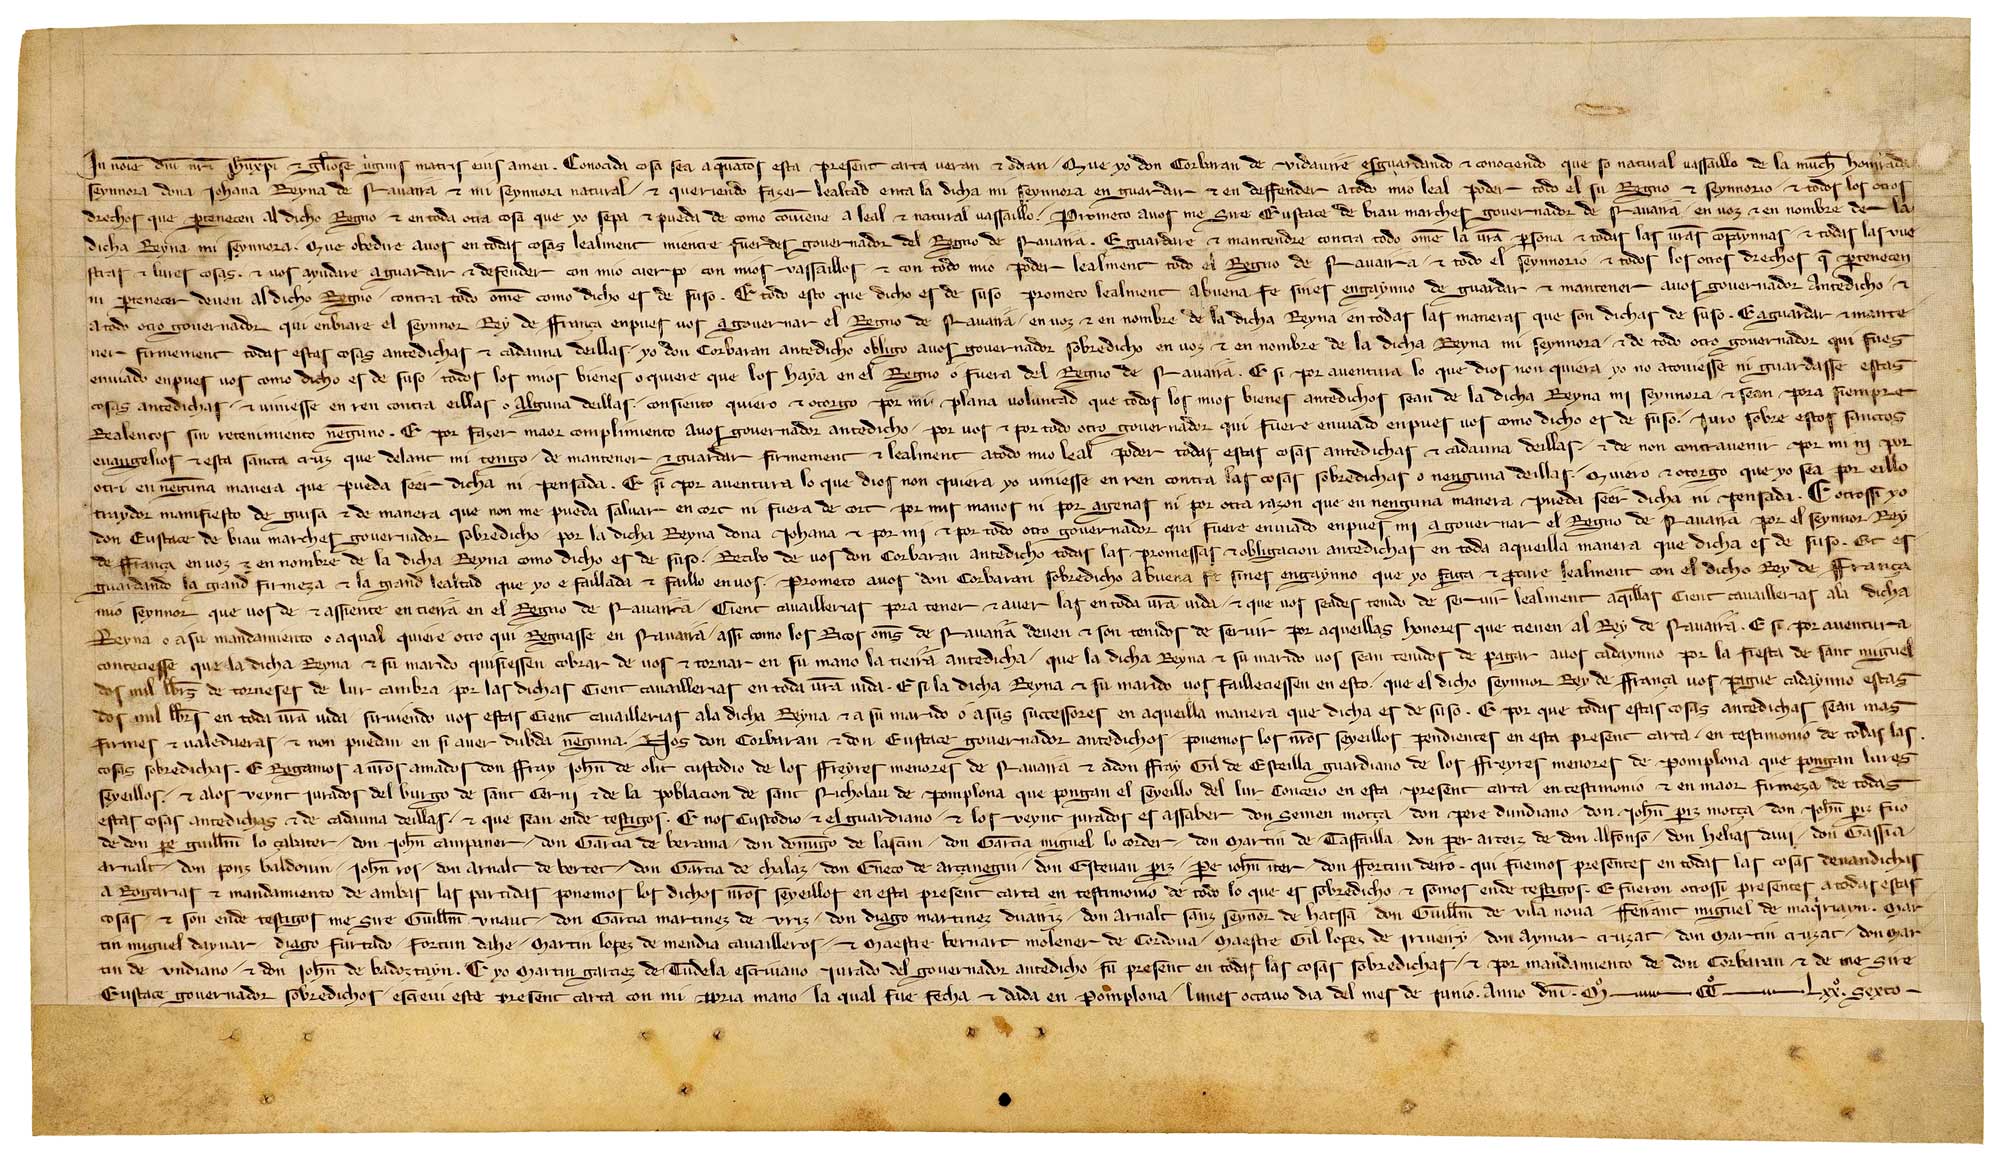 In noie dni nri Ihuxpi & gliose uirginis matris eius amen. Conocida cosa sea a quantos esta present carta veran & odran. Que yo don Corbaran de vidaurre esguardando & conociendo que so natural vassaillo de la much honrrada
seynnora dona Johana Reyna de Nauarra & mi seynnora natural, & queriendo fazer lealtad enta la dicha mi seynnora en guardar & en deffender a todo mio leal poder todo el su Regno & seynnorio, & todos los otros
drechos que pertenecen al dicho Regno & en toda otra cosa que yo sepa & pueda de como conuiene a leal & natural vassaillo. Prometo auos me Sire Eustace de biau marches gouernador de Nauarra, en voz & en nombre de la
dicha Reyna mi seynnora. Que obedire auos en todas cosas lealment mientre fueredes gouernador del Regno de Nauarra. E guardare & mantendre contra todo ome la vra persona & todas las vras compaynnas & todas las vue
stras & lures cosas. & uos ayudare a guardar & defender con mio cuerpo, con mios vassaillos & con todo mio poder lealment todo el Regno de Nauarra, & todo el seynnorio & todos los otros drechos que pertenecen
ni pertenecer deuen al dicho Regno, contra todo ome como dicho es de suso. E todo esto que dicho es de suso prometo lealment a buena fe sines engaynno de guardar & mantener auos gouernador antedicho, &
a todo otro gouernador qui enbiare el seynnor Rey de ffrança enpues uos a gouernar el Regno de Nauarra, en voz & en nombre de la dicha Reyna en todas las maneras que son dichas de suso. E a guardar & mante
ner firmement todas estas cosas antedichas & cadauna deillas, yo don Corbaran antedicho obligo auos gouernador sobredicho en voz & en nombre de la dicha Reyna mi seynnora, & de todo otro gouernador qui fues
enuiado enpues uos como dicho es de suso, todos los mios bienes o quiere que los haya en el Regno o fuera del Regno de Nauarra. E si por auentura lo que dios non quiera yo no atouiesse ni guardasse estas
cosas antedichas, & viniesse en ren contra eillas o alguna deillas, consiento quiero & otorgo por mi plana voluntad que todos los mios bienes antedichos sean de la dicha Reyna mi seynnora, & sean pora siempre
Realencos sin retenimiento neguno. E por fazer maor complimiento auos gouernador antedicho, por uos & por todo otro gouernador qui fuere enuiado enpues uos como dicho es de suso, Juro sobre estos sanctos
euangelios & esta sancta cruz que delant mi tengo, de mantener & guardar firmement & lealment a todo mio leal poder todas estas cosas antedichas & cadauna deillas, & de non contrauenir por mi ni por
otri en neguna manera que pueda seer dicha ni pensada. E si por auentura lo que dios non quiera yo viniesse en ren contra las cosas sobredichas o nenguna deillas, Quiero & otorgo que yo sea por eillo
traydor manifiesto de guisa & de manera que non me pueda saluar en cort ni fuera de cort por mis manos ni por agenas ni por otra razon que en nenguna manera pueda seer dicha ni pensada. E otrossi yo
don Eustace de biau marches gouernador sobredicho, por la dicha Reyna dona Johana & por mi & por todo otro gouernador qui fuere enuiado enpues mi a gouernar el Regno de Nauarra por el seynnor Rey
de ffrança en voz & en nombre de la dicha Reyna como dicho es de suso. Recibo de uos don Corbaran antedicho todas las promessas & obligacion antedichas en toda aqueilla manera que dicha es de suso. Et es
guardando la grand firmeza & la grand lealtad que yo e faillada & faillo en uos, prometo auos don Corbaran sobredicho a buena fe sines engaynno que yo faga & procure lealment con el dicho Rey de ffrança
mio seynnor que uos de & assiente en tierra en el Regno de Nauarra, Cient cauaillerias pora tener & auer las en toda vra vida, & que uos seades tenido de seruir lealment aqueillas Cient cauaillerias ala dicha
Reyna o a su mandamiento o a qual quiere otro qui Regnasse en Nauarra, assi como los Ricos omes de Nauarra deuen & son tenidos de seruir por aqueillas honores que tienen al Rey de Nauarra. E si por auentura
conteciesse que la dicha Reyna & su marido quisiessen cobrar de uos & tornar en su mano la tierra antedicha, que la dicha Reyna & su marido uos sean tenidos de pagar auos cadaynno por la fiesta de sant miguel
dos mil lbrs de torneses de lur cambra, por las dichas Cient cauaillerias en toda vra vida. E si la dicha Reyna & su marido uos failleciessen en esto, que el dicho seynnor Rey de ffrança uos pague cadaynno estas
dos mil lbrs en toda vra vida, siruiendo uos estas Cient cauaillerias ala dicha Reyna & a su marido o a sus successores en aqueilla manera que dicha es de suso. E por que todas estas cosas antedichas sean mas
firmes & valederas, & non puedan en si auer dubda neguna. Nos don Corbaran & don Eustace gouernador antedichos, ponemos los nros seyeillos pendientes en esta present carta, en testimonio de todas las
cosas sobredichas. E Rogamos a nros amados don ffray John de olit custodio de los ffreyres menores de Nauarra & a don ffray Gil de Esteilla guardiano de los ffreyres menores de Pomplona que pongan lures
seyeillos, & alos veynt jurados del burgo de sant Cerni & de la poblacion de sant Nicholau de pomplona que pongan el seyeillo del lur Conceio en esta present carta en testimonio & en maor firmeza de todas
estas cosas antedichas & de cadauna deillas, & que sean ende testigos. E nos Custodio & el guardiano & los veynt jurados es assaber don Semen motça, don pere dundiano, don John periz motça, don John periz fijo
de don pere guillem lo çabater, don John campaner, don Garcia de berama, don domingo de lascun, don Garcia miguel lo corder, don Martin de Taffailla, don per arceiz de don alfonso, don helias daui, don Gassia
arnalt, don ponz baldouin, John ros, don arnalt de bertet, don Garcia de chalaz, don Eneco de arçanegui, don Esteuan piz, Pe john iter, don ffortun deiro, qui fuemos presentes en todas las cosas deuandichas
a Rogarias & mandamiento de ambas las partidas ponemos los dichos nros seyeillos en esta present carta en testimonio de todo lo que es sobredicho & somos ende testigos. E fueron otrossi presentes a todas estas
cosas, & son ende testigos me sire Guillem vnaut, don Garcia martinez de vriz, don diago martinez duarriz, don arnalt sanz seynor de hatssa, don Guillem de vila noua, fferrant miguel de Mar
tin miguel dayuar, diago furtado, fortun dihe, martin lopez de mendia cauailleros, & maestre bernart molener de Cordoua, maestre Gil lopez de don aymar cruzat, don martin cruzat, don mar
tin de vndiano, & don John de badoztayn. E yo Martin garceiz de Tudela escriuano jurado del gouernador antedicho fu present en todas las cosas sobredichas, & por mandamiento de don Corbaran & de me sire
Eustace gouernador sobredichos, escreui este present carta con mi propria mano, la qual fue fecha & dada en Pomplona, lunes octauo dia del mes de junio. Anno dni. Mo CCo Lxxo. sexto